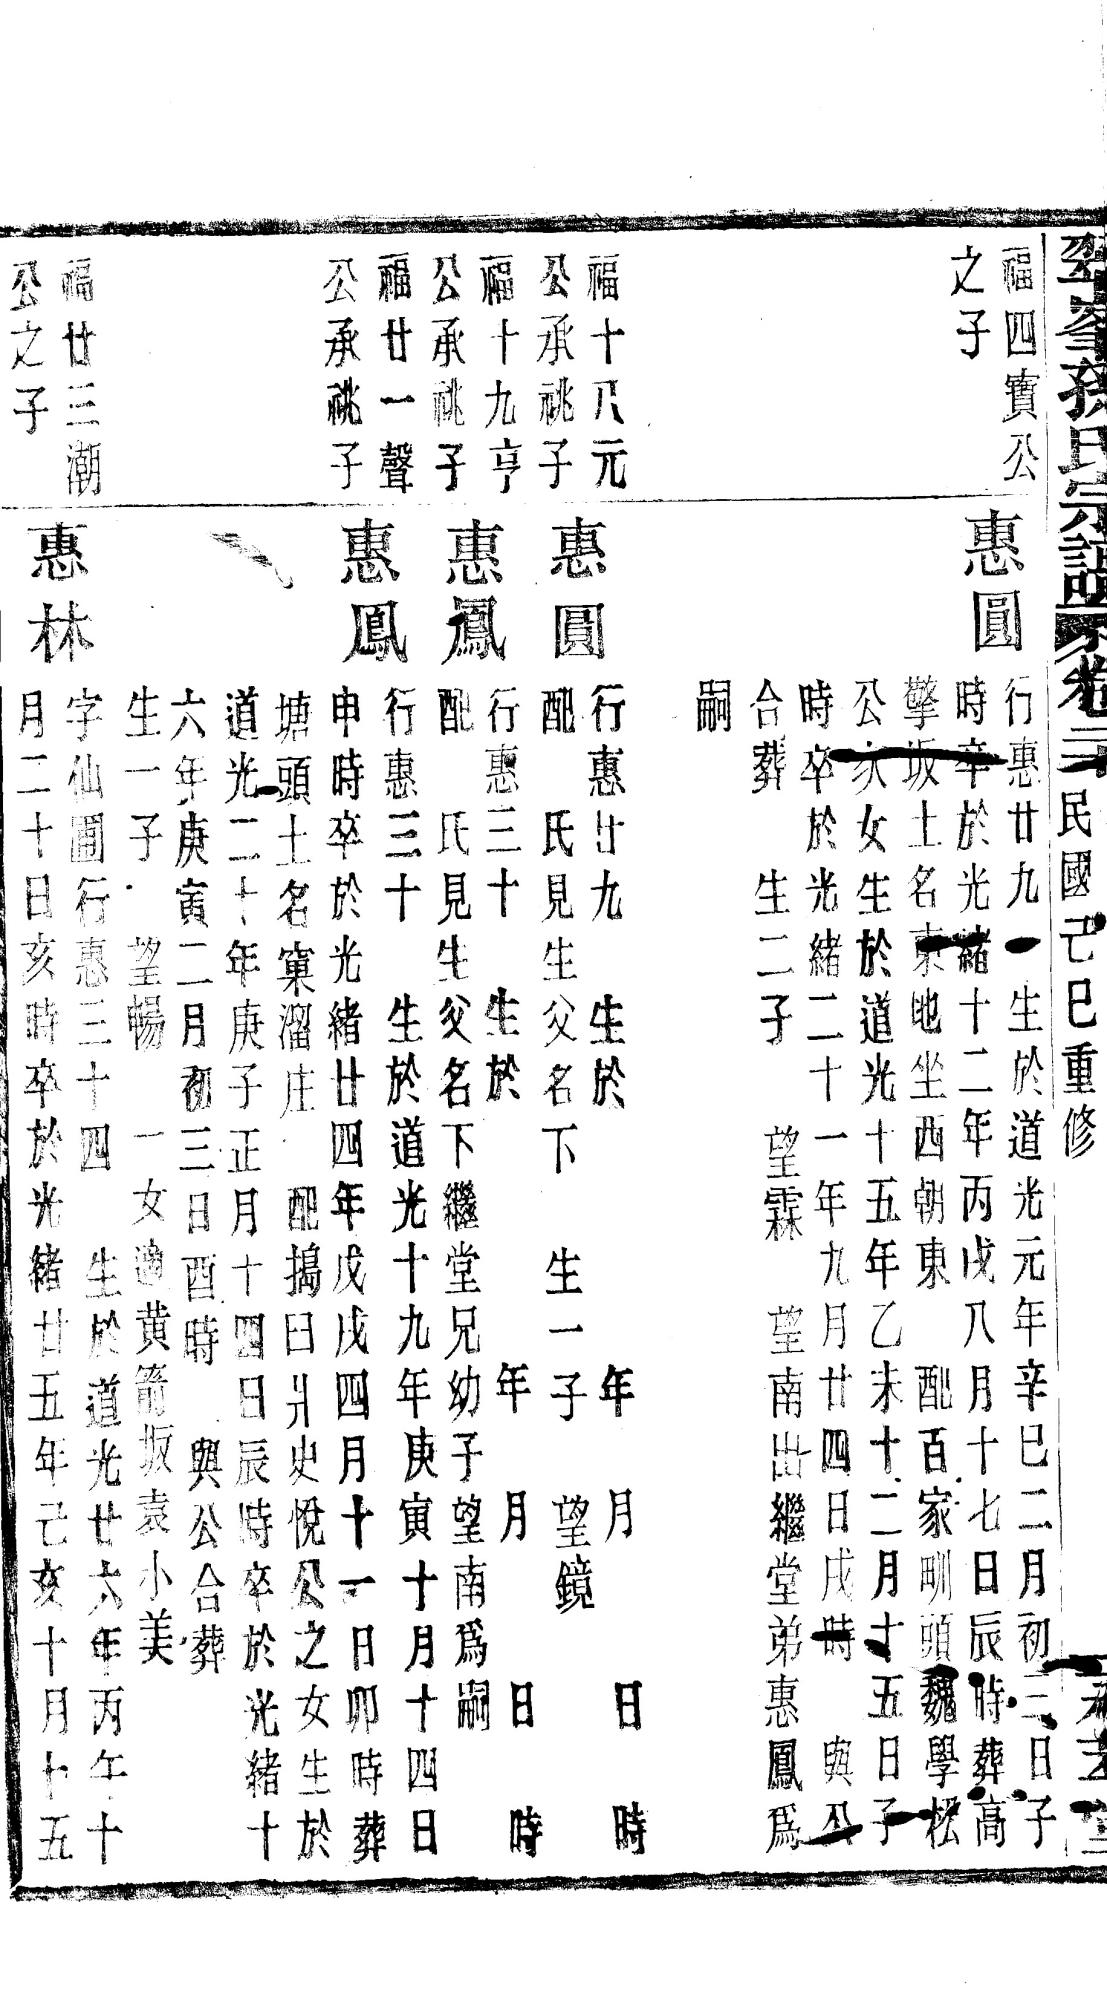 孫氏宗譜 卷二 民國己巳重修
福四寶公
之子
惠圓
行惠廿九 生於道光元年辛巳二月初三日子
時卒於光緒十二年丙戌八月十七日辰時葬高
擎坂土名東地坐西朝東 配百家㽛頭魏學松
公次女生於道光十五年乙未十二月十五日子
時卒於光緒二十一年九月廿四日戌時 與公
合葬 生二子 望霖 望南出繼堂弟惠鳳爲
嗣
福十八元
公承祧子
惠圓
行惠廿九 生於 年 月 日 時
配 氏見生父名下 生一子 望鏡
福十九亨
公承祧子
惠鳳
行惠三十 生於 年 月 日 時
配 氏見生父名下繼堂兄幼子望南爲嗣
福廿一聲
公承祧子
惠鳳
行惠三十 生於道光十九年庚寅十月十四日
申時卒於光緒廿四年戊戌四月十一日卯時葬
塘頭土名窠溜庄 配搗臼爿史悅公之女生於
道光二十年庚子正月十四日辰時卒於光緒十
六年庚寅二月初三日酉時 與公合葬
生一子 望暢 一女適黄箭坂袁小美
福廿三潮
公之子
惠林
字仙圃行惠三十四 生於道光廿六年丙午十
月二十日亥時卒於光緒廿五年己亥十月十五